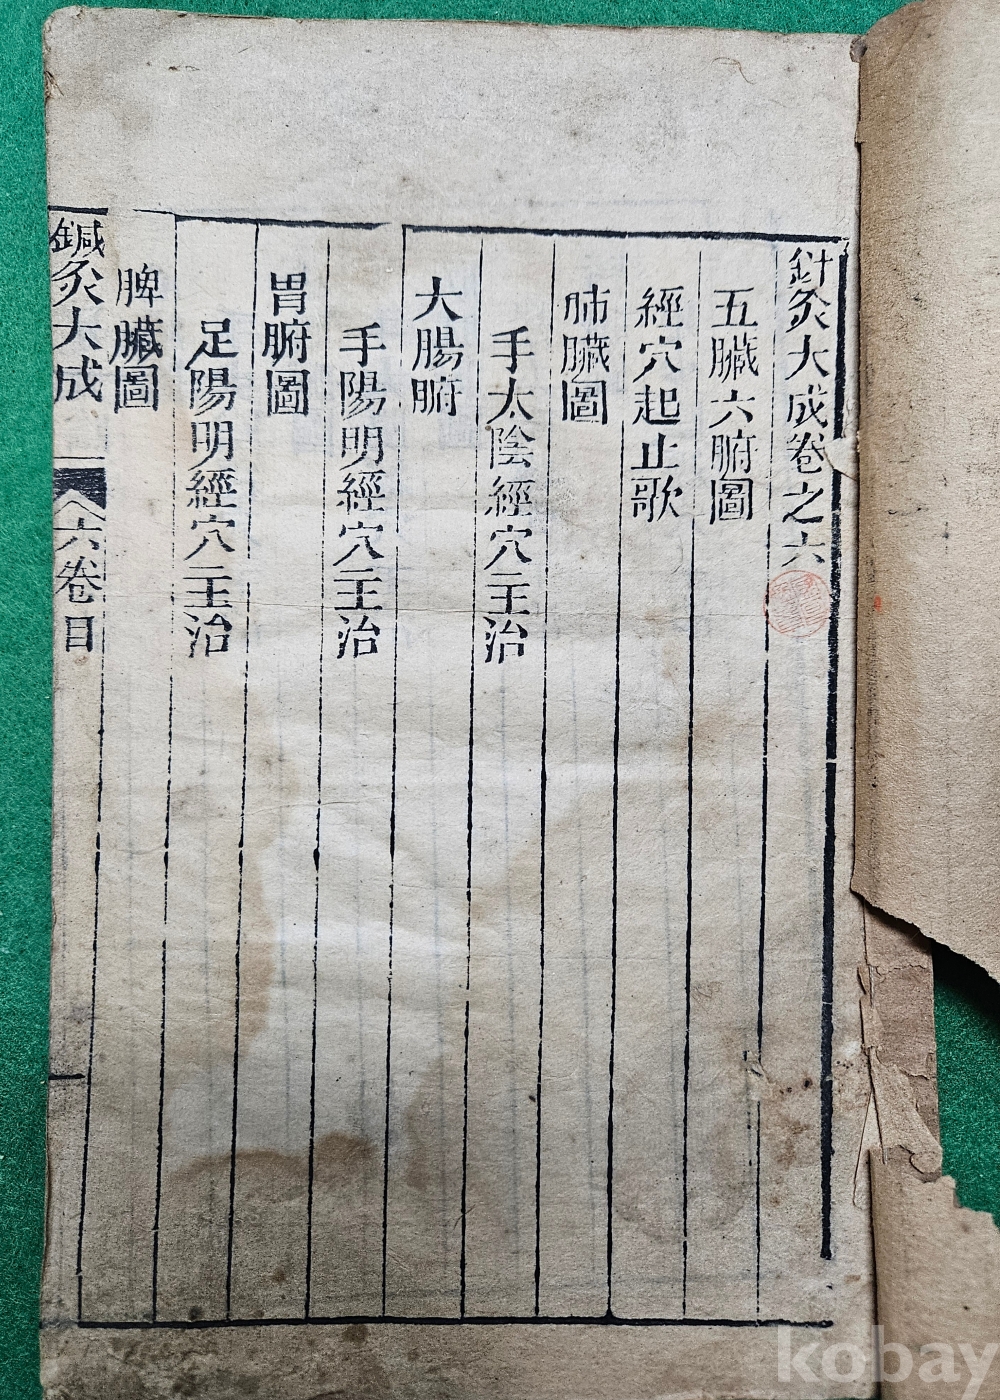 針灸大成卷之六
五臟六腑圖
經穴起止歌
肺臟圖
手太陰經穴主治
大腸腑
手陽明經穴主治
胃腑圖
足陽明經穴主治
脾臟圖
鍼灸大成
六卷目
kobay